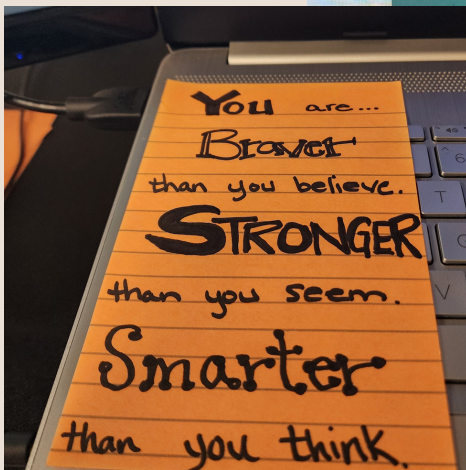 You are...
Braver
than you believe.
STRONGER
than you seem.
Smarter
than you think.
6
T
V